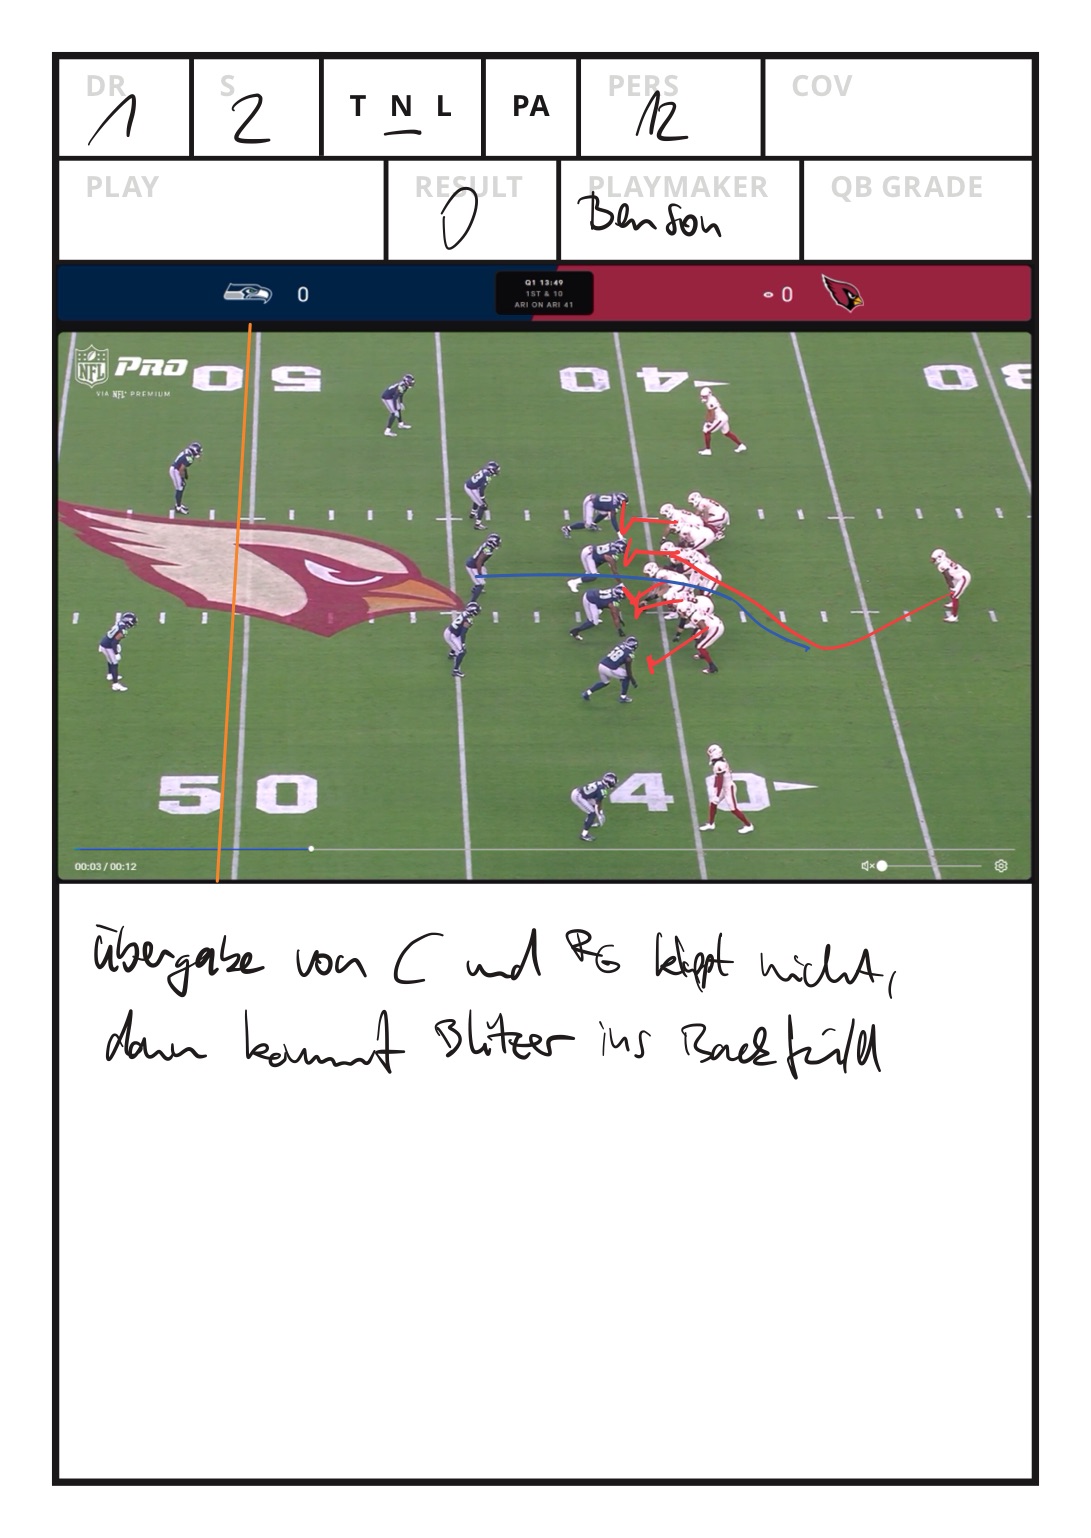 DR 1
S 2
T N L
PA
PERS 12
COV
PLAY
RESULT 0
PLAYMAKER Benson
QB GRADE
0
Q1 13:49
1ST & 10
ARI ON ARI 41
0
NFL PRO
VIA NFL+ PREMIUM
0 5
0 4
0 3
5 0
4 0
00:03 / 00:12
übergabe von C und RG klappt nicht,
dann kommt Blitzer ins Backfield